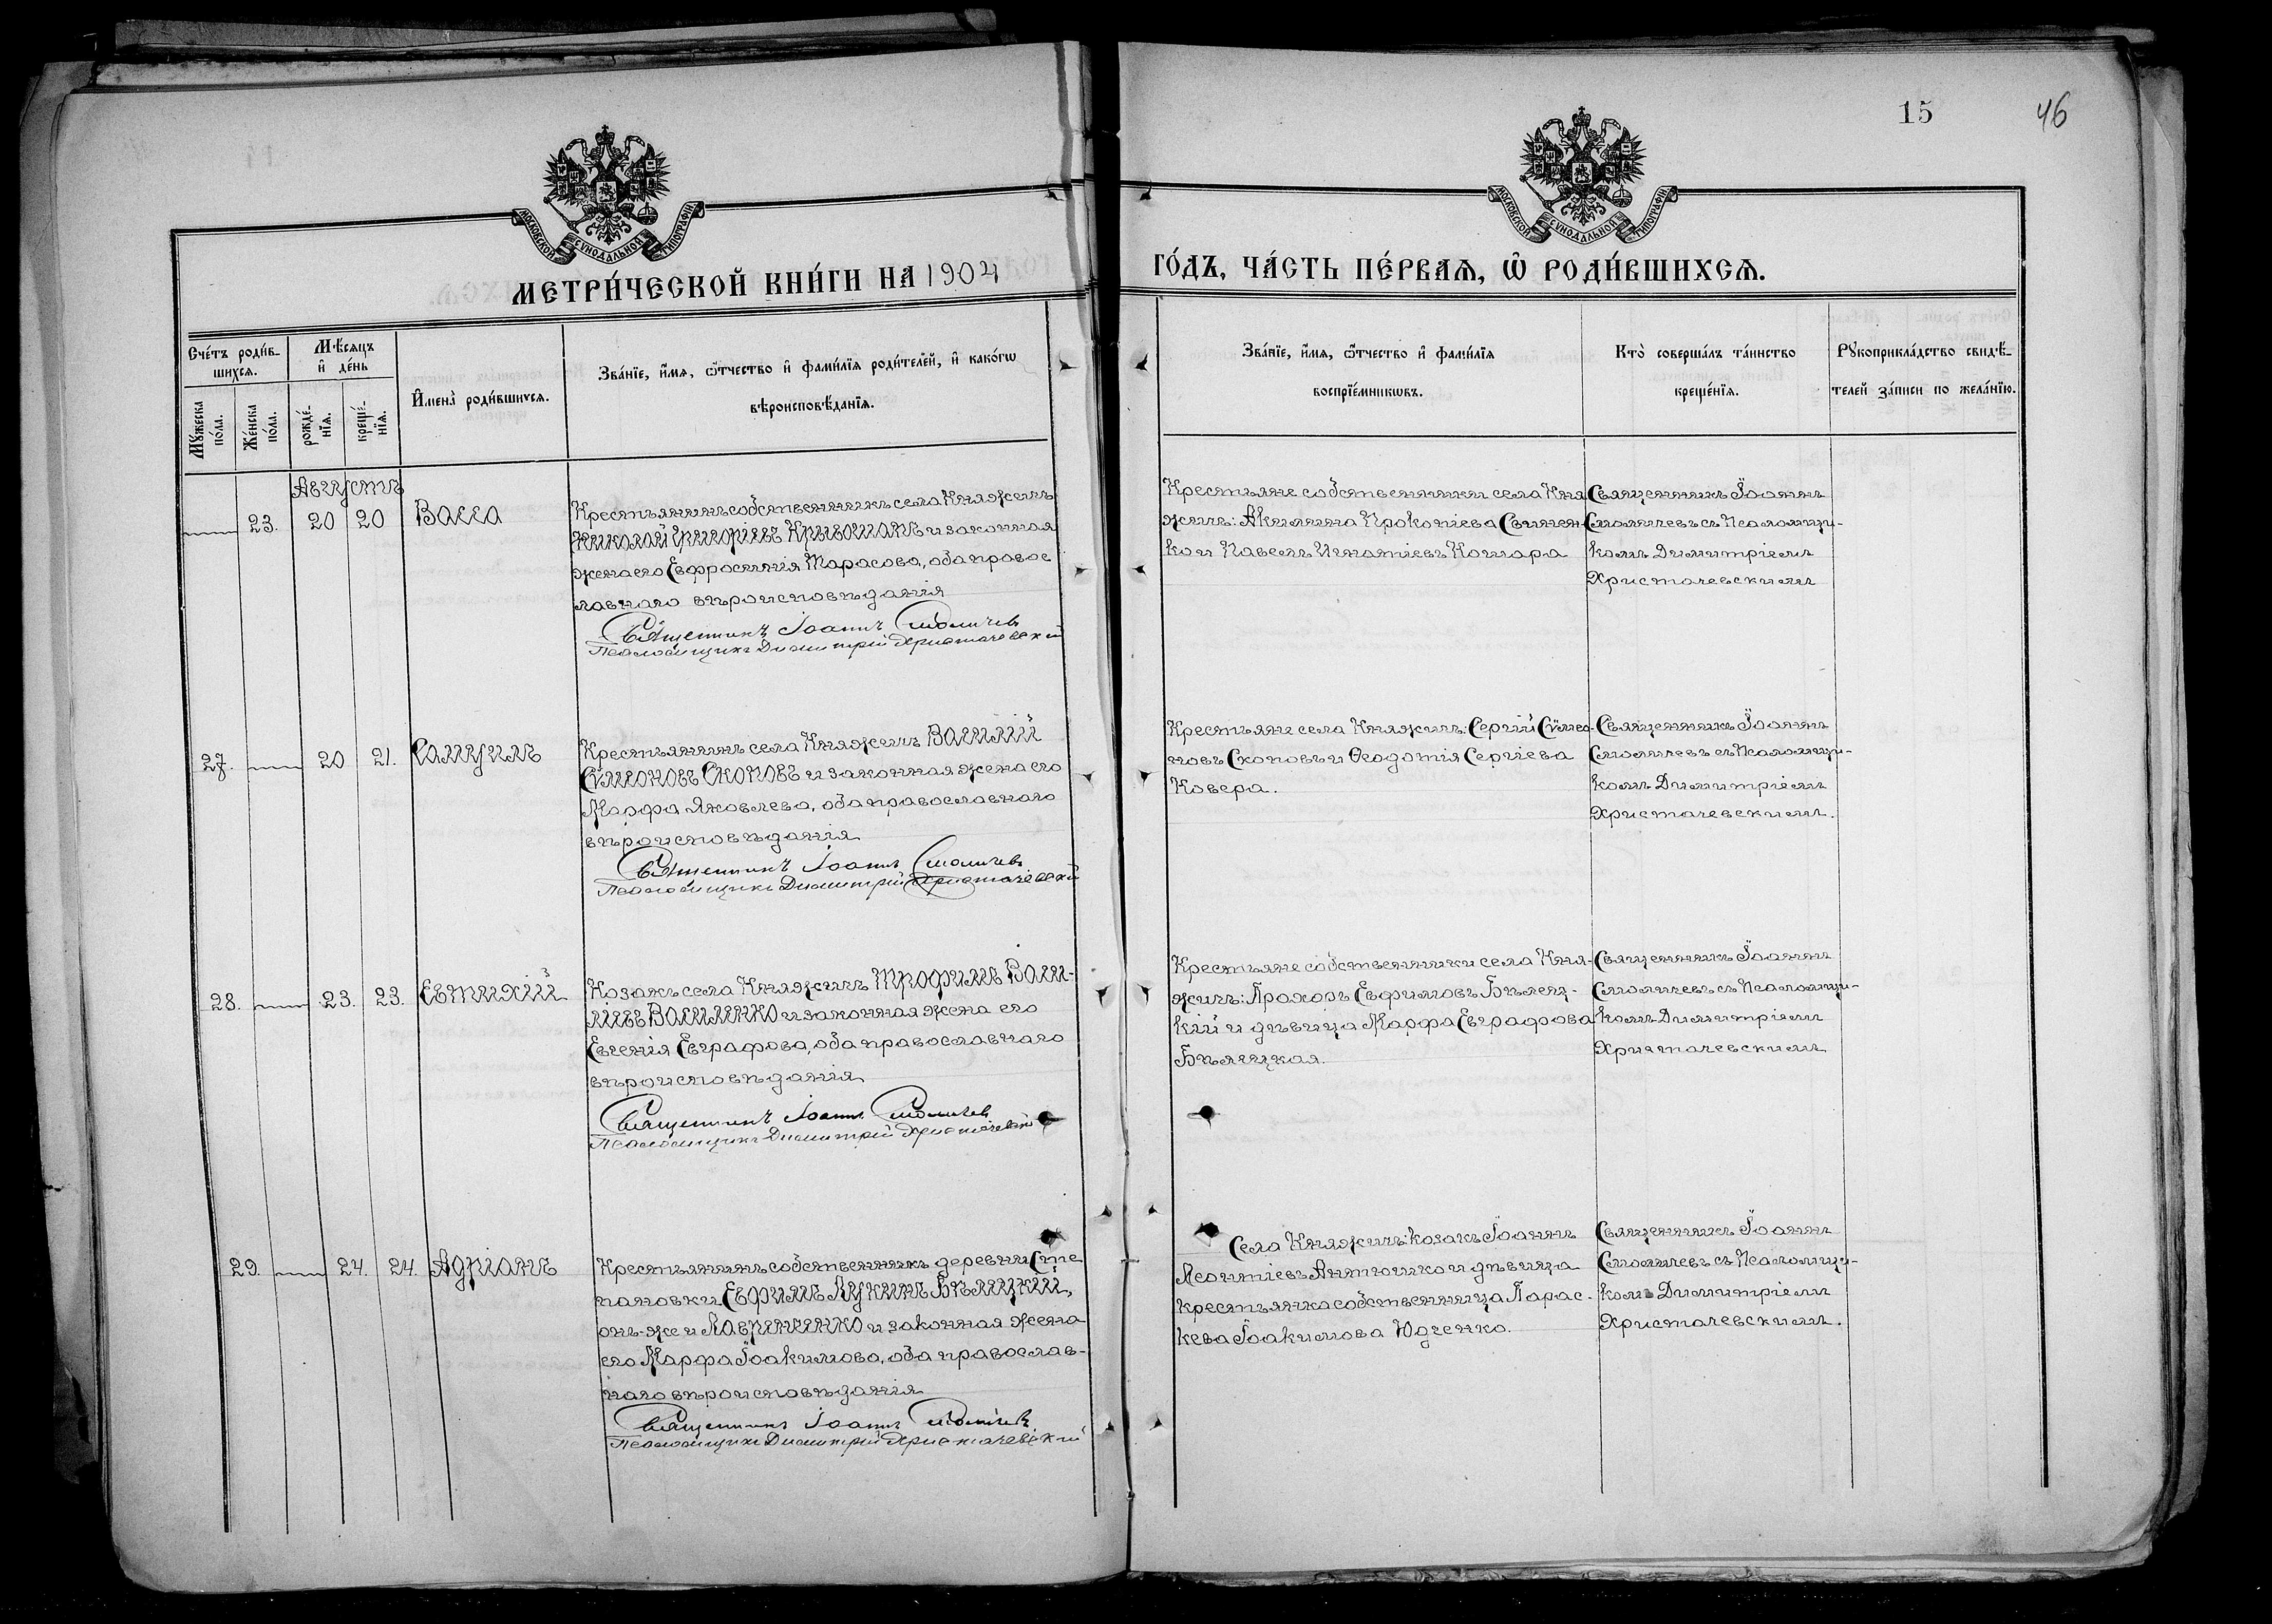 15
46
МОСКОВСКОЙ СѴНОДАЛЬНОЙ ТИПОГРАФІИ
МОСКОВСКОЙ СѴНОДАЛЬНОЙ ТИПОГРАФІИ
МЕТРИ́ЧЕСКОЙ КНИ́ГИ НА 1904
ГО́ДЪ, ЧА́СТЬ ПЕ́РВАѦ, Ѡ҆ РОДИ́ВШИХСѦ.
Сче́тъ роди́в-
шихсѧ.
Мѣ́сѧцъ
и҆ де́нь
Мꙋ́жеска
по́ла.
Же́нска
по́ла.
рожде́-
нїѧ.
креще́-
нїѧ.
И҆мена̀ роди́вшихсѧ.
Зва́нїе, и҆́мѧ, ѻ҆́тчество и҆ фами́лїѧ роди́телей, и҆ како́гѡ
вѣроисповѣ́данїѧ.
Зва́нїе, и҆́мѧ, ѻ҆́тчество и҆ фами́лїѧ
воспрїе́мникѡвъ.
Кто̀ соверша́лъ та́инство
креще́нїѧ.
Рꙋкоприкла́дство свидѣ́-
телей за́писи по жела́нїю.
Августъ
23. 20 20 Васса
Крестьянинъ собственникъ села Княжичъ
Николай Григоріевъ Кривошапъ и законная
жена его Евфросинія Тарасова, оба правос
лавнаго вѣроисповѣданія
Священникъ Іоаннъ Смоличевъ
Псаломщикъ Димитрій Христачевскій
Крестьяне собственники села Кня
жичъ: Акилина Прокопіева Свинен-
ко и Павелъ Игнатіевъ Кошара
Священникъ Іоаннъ
Смоличевъ съ Псаломщи-
комъ Димитріемъ
Христачевскимъ
27. 20 21. Самуилъ
Крестьянинъ села Княжичъ Василій
Сѵмеоновъ Скоповъ и законная жена его
Марфа Яковлева, оба православнаго
вѣроисповѣданія
Священникъ Іоаннъ Смоличевъ
Псаломщикъ Димитрій Христачевскій
Крестьяне села Княжичъ: Сергій Сѵмео-
новъ Скоповъ и Ѳеодотія Сергіева
Ковера.
Священникъ Іоаннъ
Смоличевъ съ Псаломщи-
комъ Димитріемъ
Христачевскимъ.
28. 23. 23. Евтихій
Козакъ села Княжичъ Трофимъ Васи-
ліевъ Василенко и законная жена его
Евгенія Евграфова, оба православнаго
вѣроисповѣданія
Священникъ Іоаннъ Смоличевъ
Псаломщикъ Димитрій Христачевскій
Крестьяне собственники села Кня-
жичъ: Прохоръ Евфимовъ Бѣлец-
кій и дѣвица Марфа Евграфова
Бѣлецкая.
Священникъ Іоаннъ
Смоличевъ съ Псаломщи-
комъ Димитріемъ
Христачевскимъ
29. 24. 24. Адріанъ
Крестьянинъ собственникъ деревни Сте
пановки Евфимъ Лукинъ Бѣлицкій,
онъ-же и Лавриненко и законная жена
его Марфа Іоакимова, оба православ-
наго вѣроисповѣданія
Священникъ Іоаннъ Смоличевъ
Псаломщикъ Димитрій Христачевскій
Села Княжичъ козакъ Іоаннъ
Леонтіевъ Антюшко и дѣвица
крестьянка собственница Парас-
кева Іоакимова Юдченко.
Священникъ Іоаннъ
Смоличевъ съ Псаломщи-
комъ Димитріемъ
Христачевскимъ.